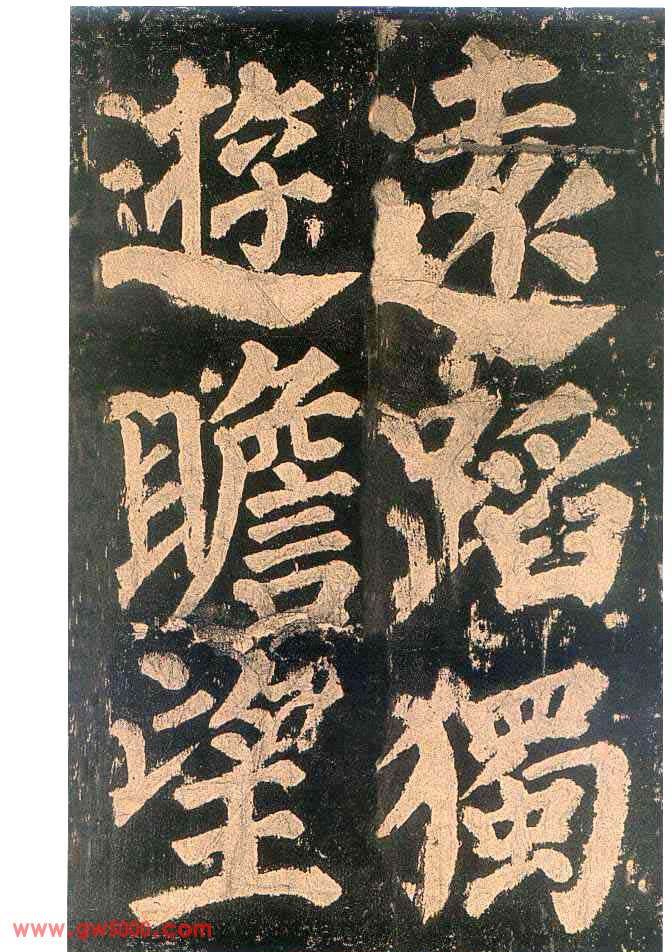 遠蹈獨
遊瞻望
www.gw5000.com